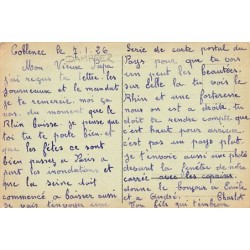 Coblence le 7.1.26
Mon Vieux Papa
j'ai reçus ta lettre. les
journeaux et le mandat
je te remercie. moi ça
va. du moment que le
Rhin baisse. je pense que
toi tu te porte bien. et
que les fêtes ce sont
bien passés a Paris a
part les inondations et
que la seine doit
commencé a baisser aussi
je vais t'envoyer une
Serie de carte postal du
Pays pour que tu vois
un peut les beautées
sur celle la tu vois le
Rhin et une forteresse
nous on est a droite tu
doit te rendre compte que
c'est haut pour arriver
c'est pas un pays plat
je t'envoie aussi une photo
devant la fenêtre de notre
avec les copains
donne le bonjour a
et a André. Charlot
Ton fils qui t'embrasse